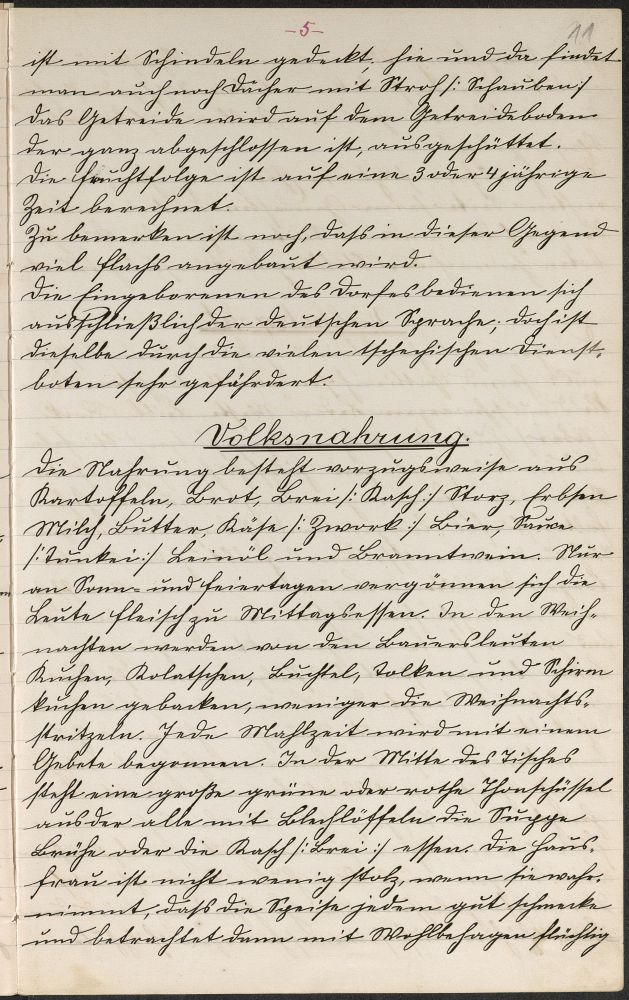 -5-
11
ist mit Schindeln gedeckt, hie und da findet
man auch noch Dächer mit Stroh /: Schauben :/
Das Getreide wird auf dem Getreideboden
der ganz abgeschlossen ist, ausgeschüttet.
Die Fruchtfolge ist auf eine 3 oder 4 jährige
Zeit berechnet.
Zu bemerken ist noch, dass in dieser Gegend
viel Flachs angebaut wird.
Die Eingeborenen des Dorfes bedienen sich
ausschließlich der deutschen Sprache; doch ist
dieselbe durch die vielen tschechischen Dienst-
boten sehr gefährdert.
Volksnahrung.
Die Nahrung besteht vorzugsweise aus
Kartoffeln, Brot, Brei /: Kasch :/ Storz, Erbsen
Milch, Butter, Käse /: Zwork :/ Bier, Sauce
/: Tunkei :/ Leinöl und Branntwein. Nur
an Sonn- und Feiertagen vergönnen sich die
Leute Fleisch zu Mittagsessen. In den Weih-
nachten werden von den Bauersleuten
Kuchen, Kolatschen, Buchtel, Tolken und Schirm
kuchen gebacken, weniger die Weihnachts-
stritzeln. Jede Mahlzeit wird mit einem
Gebete begonnen. In der Mitte des Tisches
steht eine große grüne oder rothe Thonschüssel
aus der alle mit Blechlöffeln die Suppe
Brühe oder die Kasch /: Brei :/ essen. Die Haus-
frau ist nicht wenig stolz, wenn sie wahr-
nimmt, dass die Speise jedem gut schmecke
und betrachtet dann mit Wohlbehagen flüchtig